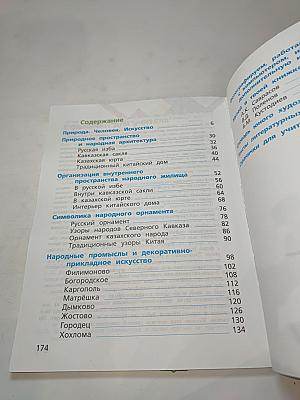 Содержание
Природа. Человек. Искусство 6
Природное пространство
и народная архитектура 30
Русская изба 32
Кавказская сакля 36
Казахская юрта 40
Традиционный китайский дом 44
Организация внутреннего
пространства народного жилища 52
В русской избе 56
Внутри кавказской сакли 60
В казахской юрте 64
Интерьер китайского дома 68
Символика народного орнамента 76
Русский орнамент 78
Узоры народов Северного Кавказа 82
Орнамент казахского народа 86
Традиционные узоры Китая 90
Народные промыслы и декоративно-
прикладное искусство 98
Филимоново 102
Богородское 108
Каргополь 112
Матрёшка 116
Дымково 120
Жостово 126
Городец 130
Хохлома 134
174
работа
компьютером,
книжке
А.К. Саврасов
В.Д. Поленов
Б.М. Кустодиев
литературных
для учителя